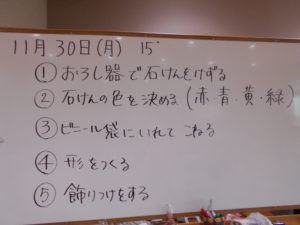 11月30日(月) 15°
① おろし器で石けんをけずる
② 石けんの色を決める(赤・青・黄・緑)
③ ビニール袋にいれて こねる
④ 形をつくる
⑤ 飾りつけをする